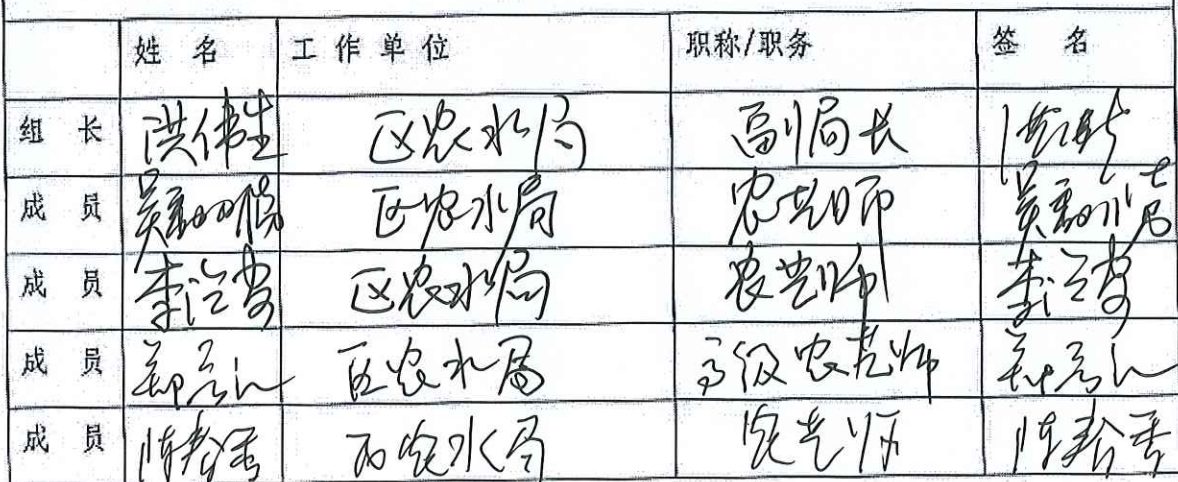 姓 名 工作单位 职称/职务 签 名
组 长 洪伟生 区农水局 副局长 洪伟生
成 员 吴 区农水局 农艺师 吴
成 员 李 区农水局 农艺师 李
成 员 郑 区农水局 高级农艺师 郑
成 员 陈 区农水局 农艺师 陈